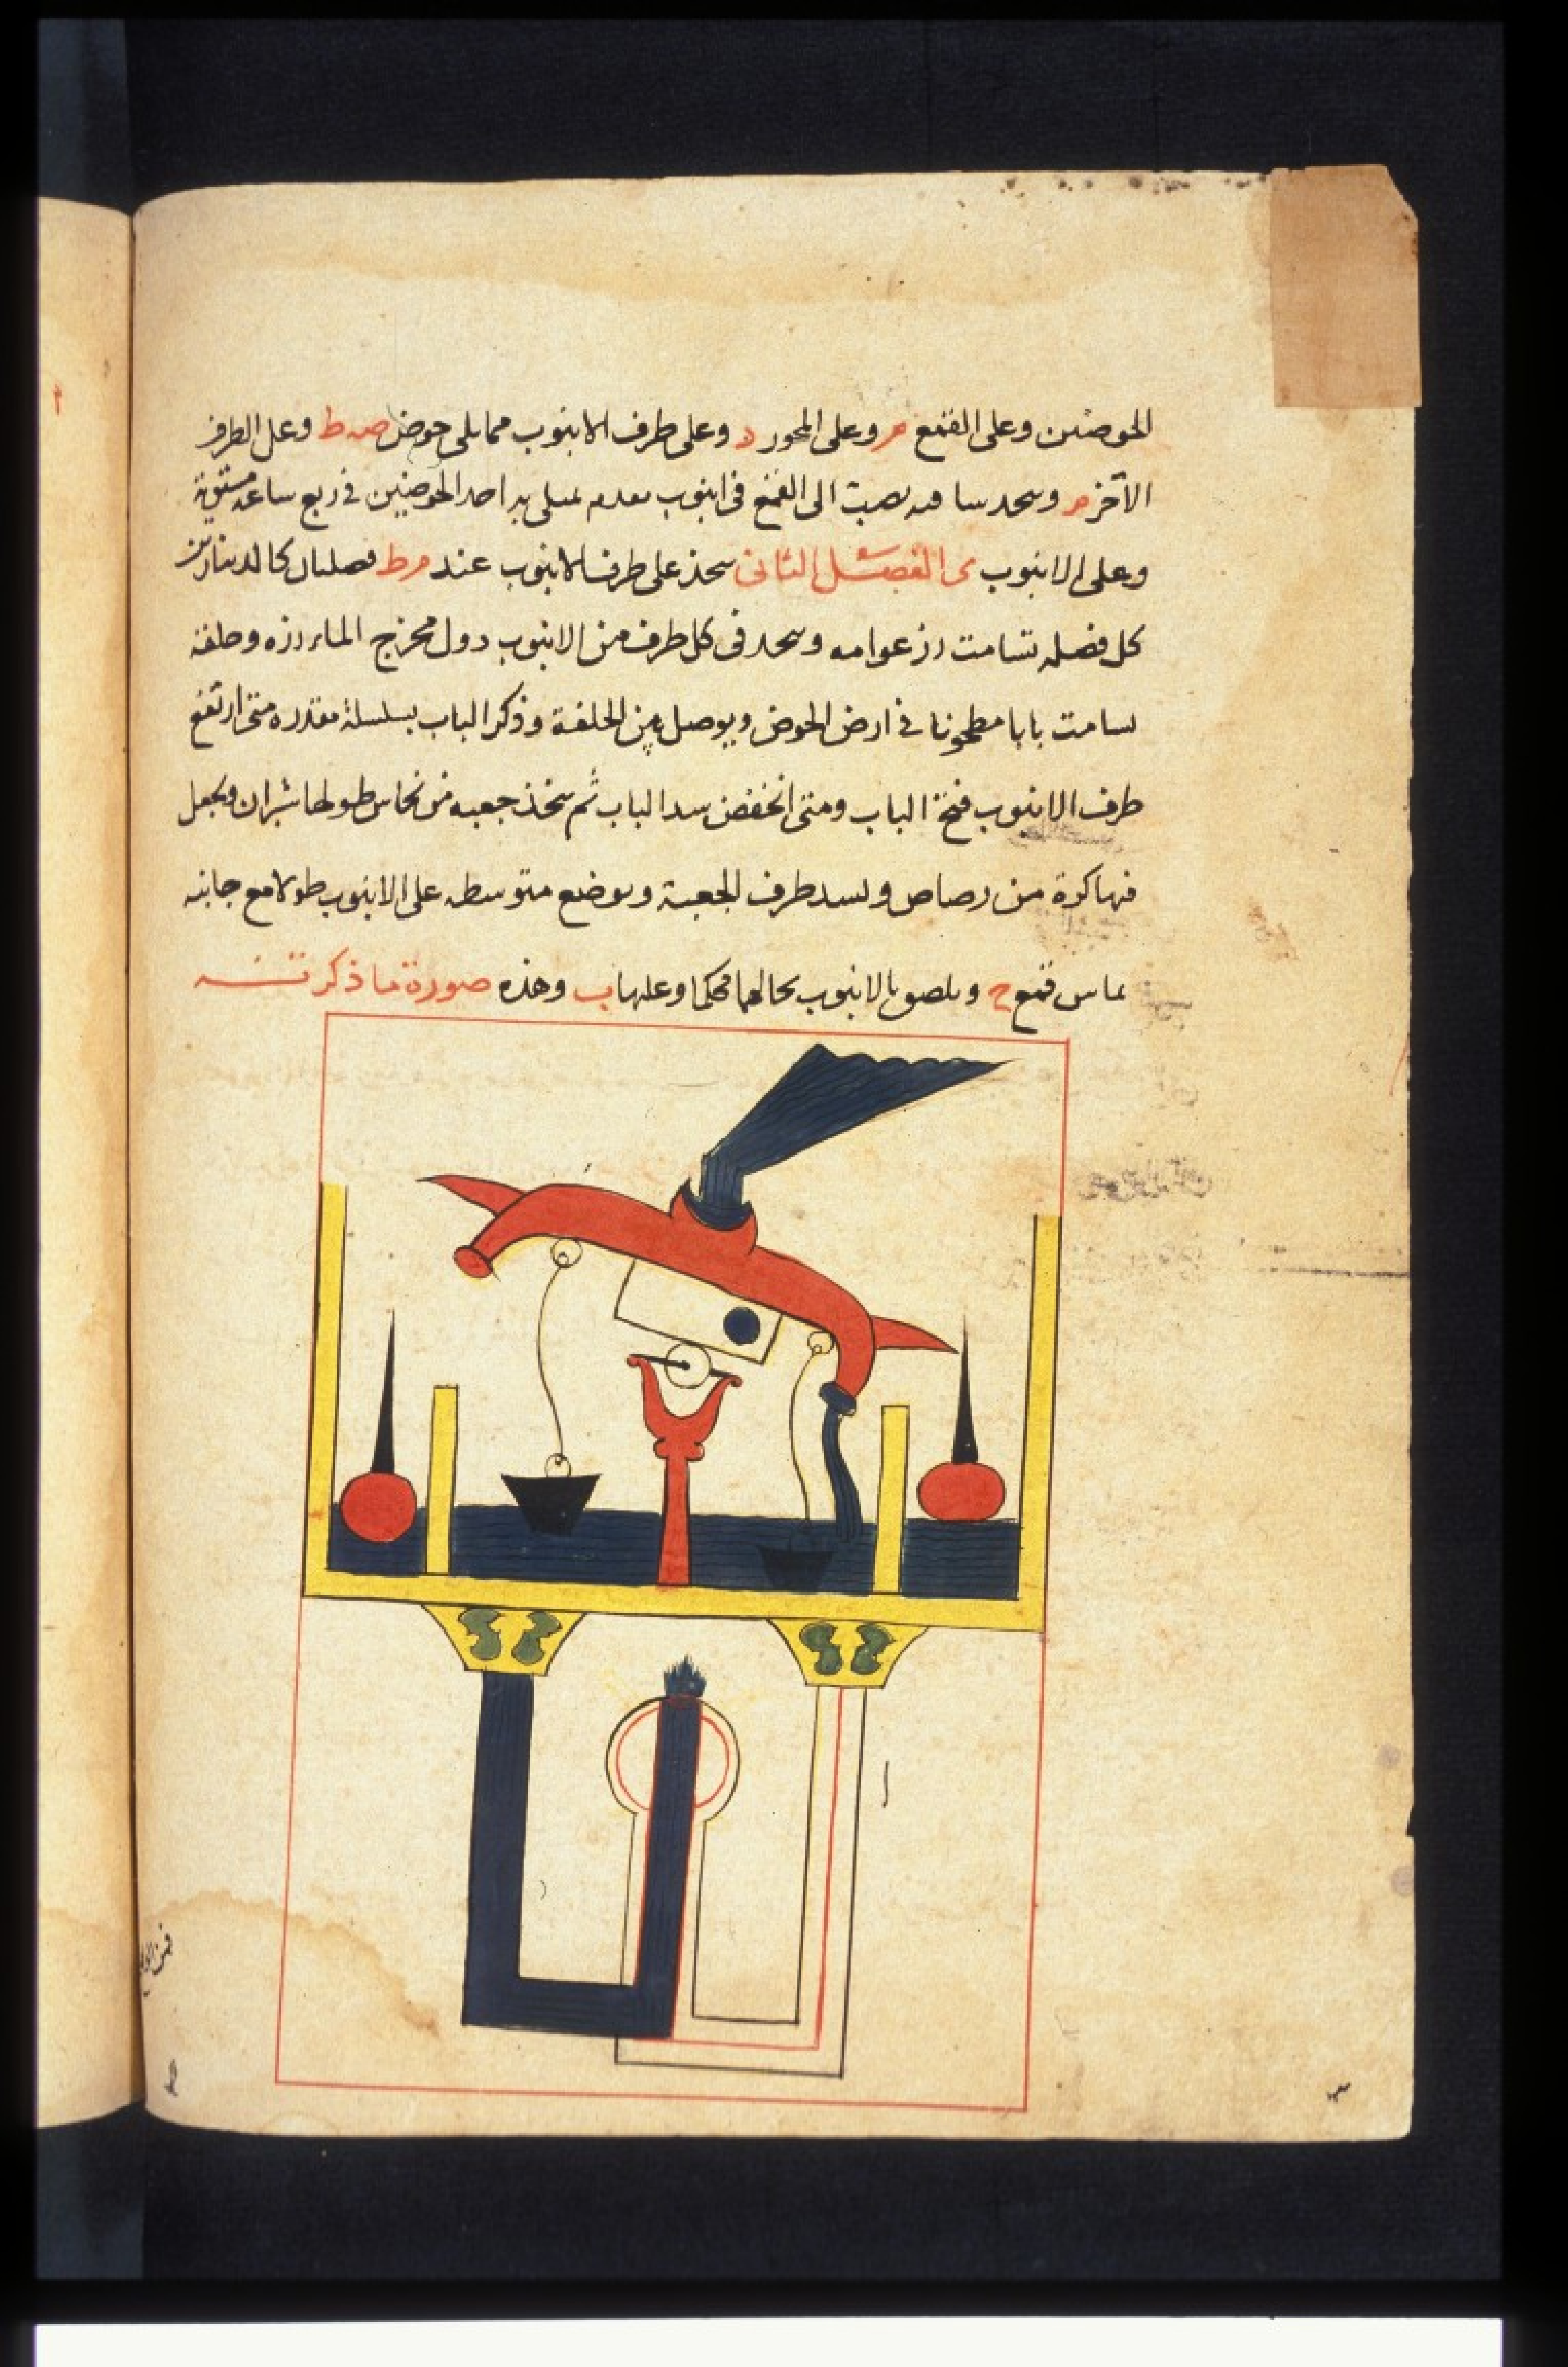 الحوضين وعلى القمع م وعلى المحور د وعلى طرف الانبوب مما يلى حوض صه ط وعلى الطرف
الآخر م وسحد سا قىه ىصبّ الى القمع فى انبوب معدم لىملى به احد الحوضين فى ربع ساعة مستوية
وعلى الانبوب ى الفصل الثانى ىتخذ على طرف الانبوب عند م ط فصلىان كالدىنارين
كل فضلة تسامت رز عوامه وىتخذ فى كل طرف من الانبوب دون مخرج الماء رزه وحلقة
ىسامت بابا مطحونا فى ارض الحوض ويوصل بين الحلقة وذكر الباب بسلسلة مقدره متى ارتفع
طرف الانبوب فتح الباب ومتى انخفض سد الباب ثم ىتخذ جعبه من نحاس طولها شبران ويجعل
فيها كرة من رصاص وىسد طرف الجعبة وىوضع متوسطه على الانبوب طولا مع جانبه
ىماس قمع ح وىلصق بالانبوب بحالها محكما وعليها ب وهذه صورة ما ذكرته